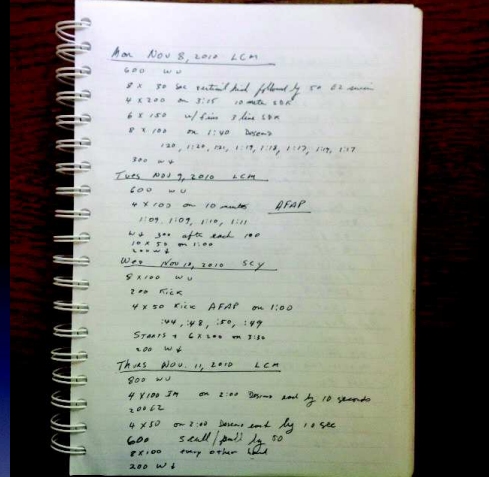 Mon Nov 8, 2010 LCM
600 WU
8 x 30 sec vertical kick followed by 50 EZ swim
4 x 200 on 3:15 10 meter SDK
6 x 150 w/ fins 3 line SDK
8 x 100 on 1:40 Descend
1:19, 1:18, 1:17, 1:19, 1:17
300 Wd
Tues Nov 9, 2010 LCM
600 WU
4 x 100 on 10 minutes AFAP
1:09, 1:09, 1:10, 1:11
Wd 300 after each 100
10 x 50 on 1:00
200 Wd
Wed Nov 10, 2010 SCY
8 x 100 WU
200 Kick
4 x 50 Kick AFAP on 1:00
:44, :48, :50, :49
Starts + 6 x 200 on 3:30
200 Wd
Thurs Nov. 11, 2010 LCM
800 WU
4 x 100 IM on 2:00 Descend each by 10 seconds
200 EZ
4 x 50 on 2:00 Descend each by 10 sec
600 scull/pull by 50
8 x 100 every other
200 Wd